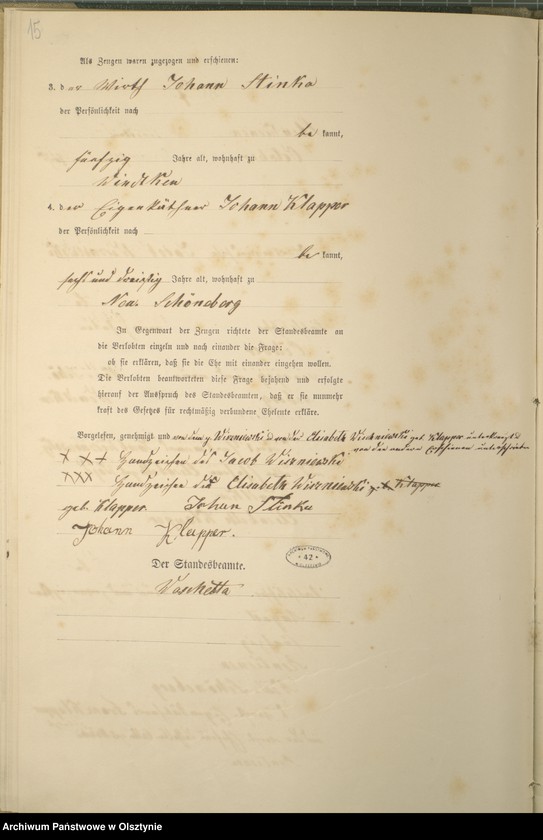 15
Als Zeugen waren zugezogen und erschienen:
3. der Wirth Johann Stinka
der Persönlichkeit nach
be kannt,
fünfzig Jahre alt, wohnhaft zu
Windtken
4. der Eigenkäthner Johann Klapper
der Persönlichkeit nach
be kannt,
sechs und dreißig Jahre alt, wohnhaft zu
Neu Schöneberg
In Gegenwart der Zeugen richtete der Standesbeamte an
die Verlobten einzeln und nach einander die Frage:
ob sie erklären, daß sie die Ehe mit einander eingehen wollen.
Die Verlobten beantworteten diese Frage bejahend und erfolgte
hierauf der Ausspruch des Standesbeamten, daß er sie nunmehr
kraft des Gesetzes für rechtmäßig verbundene Eheleute erkläre.
Vorgelesen, genehmigt und von dem Wiszniewski und der Elisabeth Wiszniewski geb. Klapper unterkreuzt
von den andern Erschienenen unterschrieben
XXX Handzeichen des Jacob Wiszniewski
XXX Handzeichen der Elisabeth Wiszniewski geb. Klapper
geb. Klapper. Johan Stinka
Johann Klapper.
Der Standesbeamte.
Woschetta
42
Archiwum Państwowe w Olsztynie